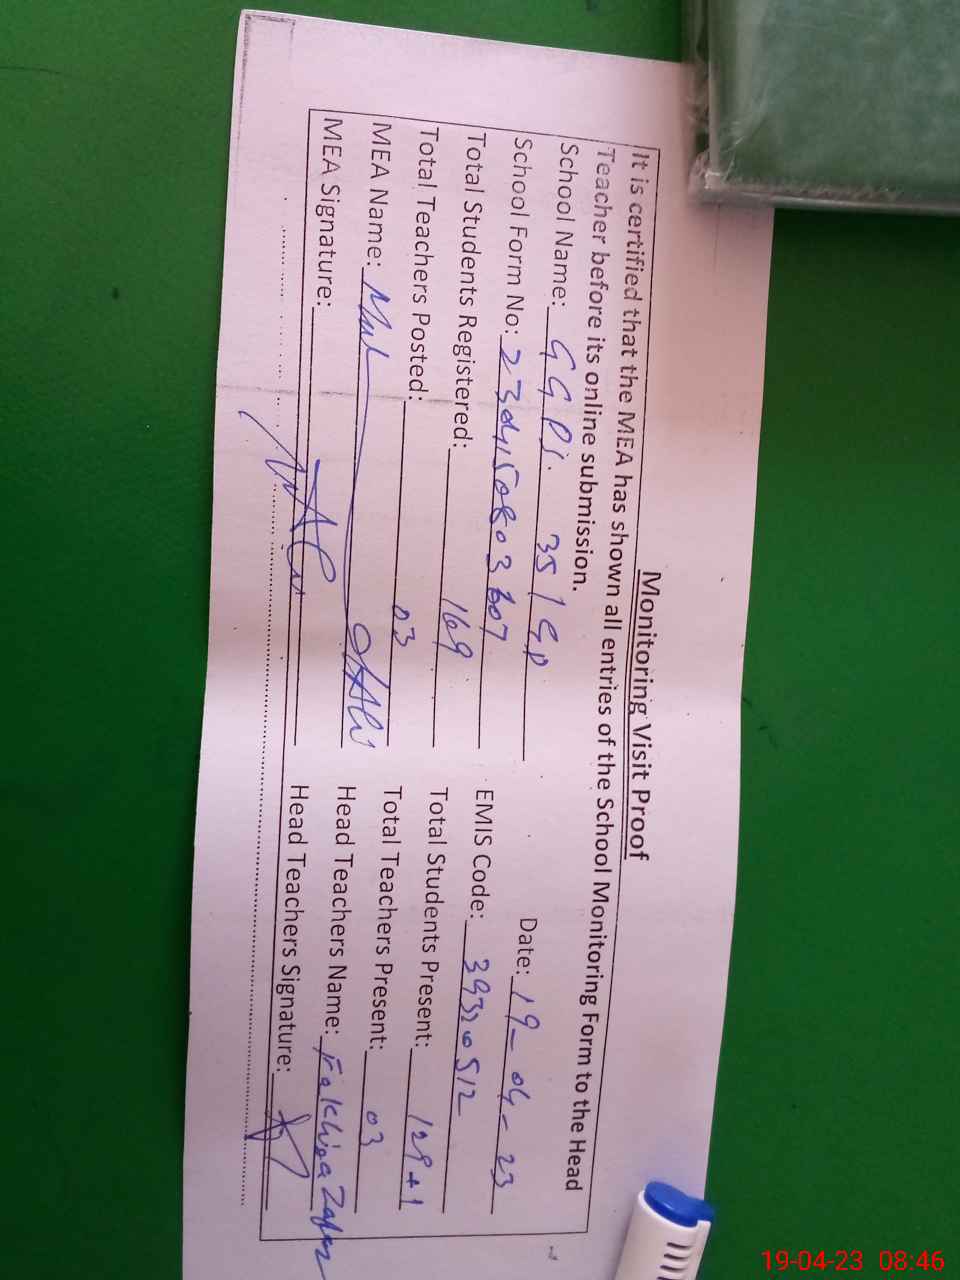 Monitoring Visit Proof
It is certified that the MEA has shown all entries of the School Monitoring Form to the Head
Teacher before its online submission.
Date: 19-04-23
School Name: GGPS. 35/GD
School Form No: EMIS Code: 39320512
Total Students Registered: 169 Total Students Present: 129+1
Total Teachers Posted: 03 Total Teachers Present: 03
MEA Name: Head Teachers Name: Zafar
MEA Signature: Head Teachers Signature:
19-04-23 08:46